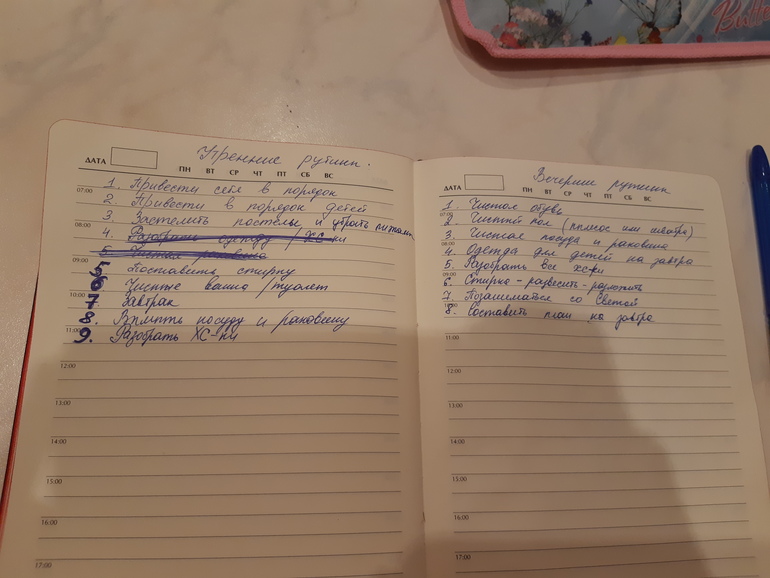 ДАТА
ПН ВТ СР ЧТ ПТ СБ ВС
Утренние рутины.
07:00
1. Привести себя в порядок
2. Привести в порядок детей
3. Застелить постелье и убрать
08:00
4. Разобрать одежду / ХС-ки
5. Чистая раковина
09:00
5 Поставить стирку
6 Чистые ванна / туалет
10:00
7 Завтрак
8. Вымыть посуду и раковину
11:00
9. Разобрать ХС-ки
12:00
13:00
14:00
15:00
16:00
17:00
ДАТА
ПН ВТ СР ЧТ ПТ СБ ВС
Вечерние рутины
1. Чистая обувь
07:00
2. Чистый пол (пылесос или швабра)
3. Чистая посуда и раковина
08:00
4. Одежда для детей на завтра
5. Разобрать все хс-ки
09:00
6. Стирка - развесить - разложить
7. Позаниматься со Светой
8. Составить план на завтра
11:00
12:00
13:00
14:00
15:00
16:00
17:00